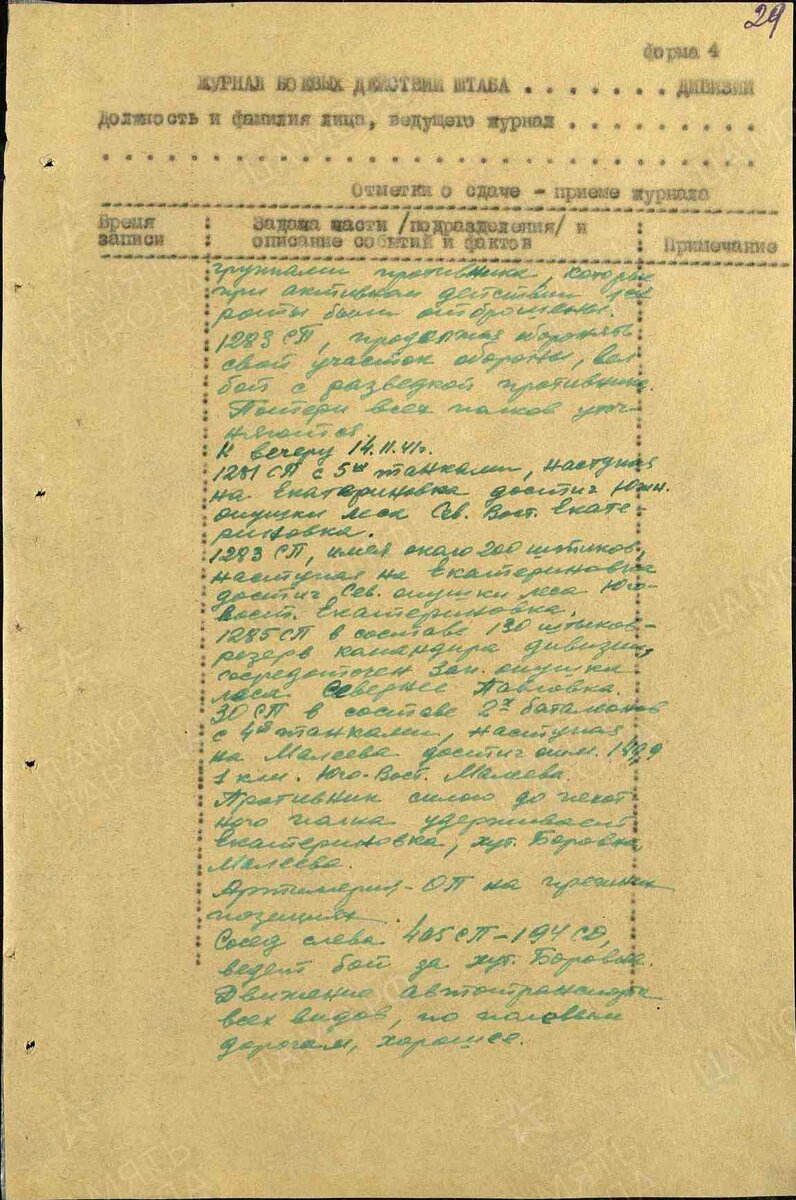 29
форма 4
ЖУРНАЛ БОЕВЫХ ДЕЙСТВИЙ ШТАБА . . . . . . . ДИВИЗИИ
Должность и фамилия лица, ведущего журнал . . . . . . . . .
Отметки о сдаче - приеме журнала
Время записи
Задача части /подразделения/ и описание событий и фактов
Примечание
группами противника, которые
при активном действии
роты были отброшены.
1283 СП, продолжая оборонять
свой участок обороны, вел
бой с разведкой противника.
Потери всех полков уточ-
няются.
К вечеру 14.11.41г.
1281 СП с 5ю танками, наступая
на Екатериновка достиг Южн.
опушки леса Сев. Вост. Екате-
риновка.
1283 СП, имея около 200 штыков,
наступая на Екатериновка
достиг Сев. опушки леса Юго-
Вост. Екатериновка.
1285 СП в составе 130 штыков-
резерв командира дивизии,
сосредоточен Зап. опушка
леса Севернее Павловка.
30 СП в составе 2х батальонов
с 4мя танками, наступая
на Малеева достиг
1 клм. Юго-Вост. Малеева.
Противник силою до пехот-
ного полка удерживает
Екатериновка, хут. Боровна,
Малеева.
Артиллерия - ОП на прежних
позициях.
Сосед слева 405 СП - 194 СД,
ведет бой за хут. Боровна.
Движение автотранспорта
всех видов, по полевым
дорогам, хорошее.